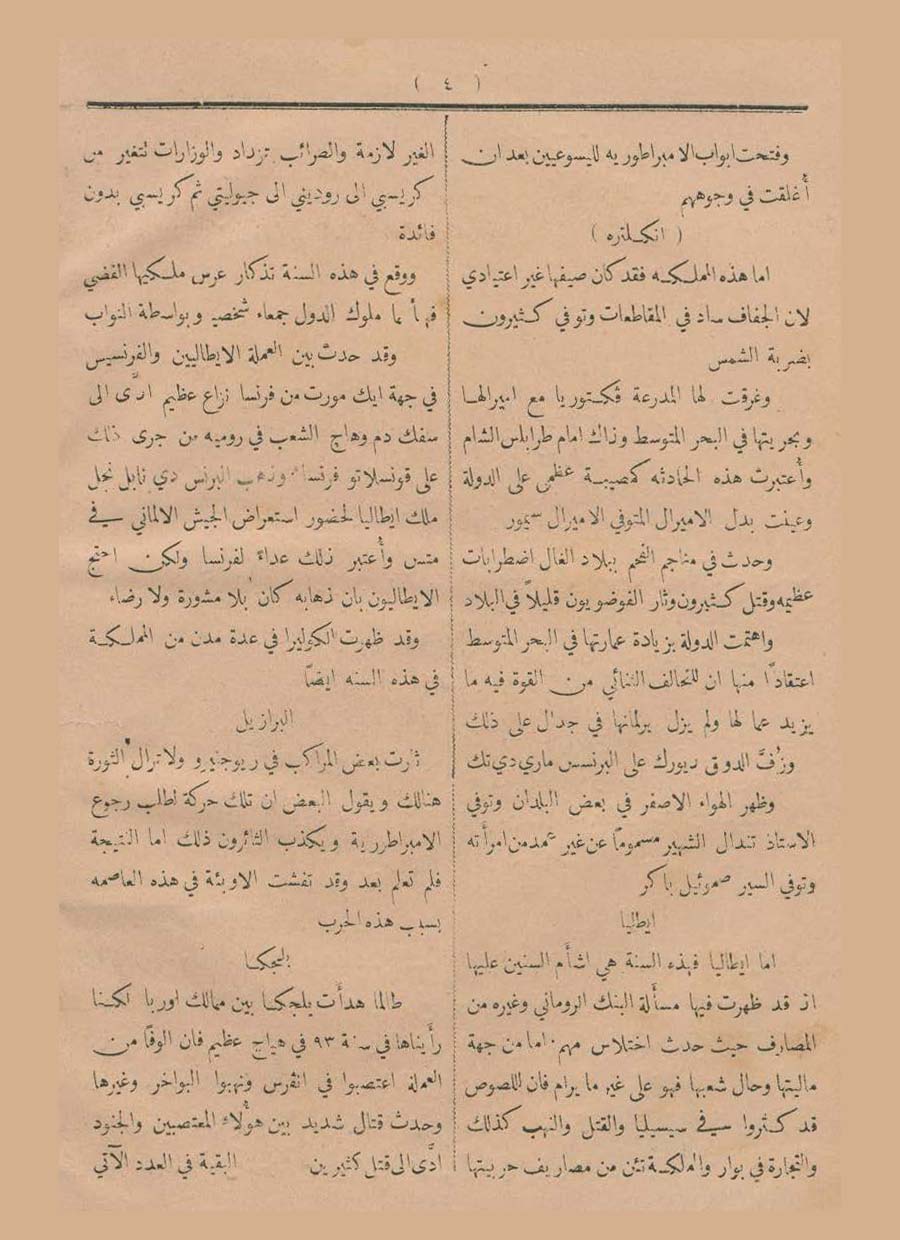 ( ٤ )
وفتحت ابواب الامبراطوريه لليسوعيين بعد ان
أُغلقت في وجوههم
( انكلتره )
اما هذه المملكه فقد كان صيفها غير اعتيادي
لان الجفاف ساد في المقاطعات وتوفي كثيرون
بضربة الشمس
وغرقت لها المدرعة فكتوريا مع اميرالها
وبحريتها في البحر المتوسط وذاك امام طرابلس الشام
وأعتبرت هذه الحادثه كمصيبة عظمى على الدولة
وعينت بدل الاميرال المتوفي الاميرال سيمور
وحدث في مناجم الفحم ببلاد الغال اضطرابات
عظيمه وقتل كثيرون وثار الفوضويون قليلاً في البلاد
واهتمت الدولة بزيادة عمارتها في البحر المتوسط
اعتقاداً منها ان للتحالف الثنائي من القوة فيه ما
يزيد عما لها ولم يزل برلمانها في جدال على ذلك
وزُفَّ الدوق ديورك على البرنسس ماري دي تك
وظهر الهواء الاصفر في بعض البلدان وتوفي
الاستاذ تندال الشهير مسموماً عن غير عمد من امرأته
وتوفي السير صموئيل باكر
ايطاليا
اما ايطاليا فهذه السنة هي اشأم السنين عليها
اذ قد ظهرت فيها مسألة البنك الروماني وغيره من
المصارف حيث حدث اختلاس مهم . اما من جهة
ماليتها وحال شعبها فهو على غير ما يرام فان اللصوص
قد كثروا في سيسيليا والقتل والنهب كذلك
والتجارة في بوار والملكة تئن من مصاريف حربيتها
الغير لازمة والضرائب تزداد والوزارات لتغير من
كريسبي الى روديني الى جيوليتي ثم كريسبي بدون
فائدة
ووقع في هذه السنة تذكار عرس ملكيها الفضي
فهنأهما ملوك الدول جمعاء شخصيا وبواسطة النواب
وقد حدث بين العملة الايطاليين والفرنسيس
في جهة ايك مورت من فرنسا نزاع عظيم ادَّى الى
سفك دم وهاج الشعب في روميه من جرى ذلك
على قونسلاتو فرنسا وذهب البرنس دي نابل نجل
ملك ايطاليا لحضور استعراض الجيش الالماني في
متس وأعتبر ذلك عداءً لفرنسا ولكن احتج
الايطاليون بان ذهابه كان بلا مشورة ولا رضاء
وقد ظهرت الكوليرا في عدة مدن من المملكة
في هذه السنه ايضاً
البرازيل
ثارت بعض المراكب في ريوجنيرو ولا تزال الثورة
هنالك ويقول البعض ان تلك حركة لطلب رجوع
الامبراطررية ويكذب الثائرون ذلك اما النتيجة
فلم تعلم بعد وقد تفشت الاوبئة في هذه العاصمه
بسبب هذه الحرب
بلجكا
طالما هدأت بلجكيا بين ممالك اوربا لكننا
رأيناها في سنة ٩٣ في هياج عظيم فان الوفاً من
العملة اعتصبوا في انفرس ونهبوا البواخر وغيرها
وحدث قتال شديد بين هؤلاء المعتصبين والجنود
ادَّى الى قتل كثيرين البقية في العدد الآتي